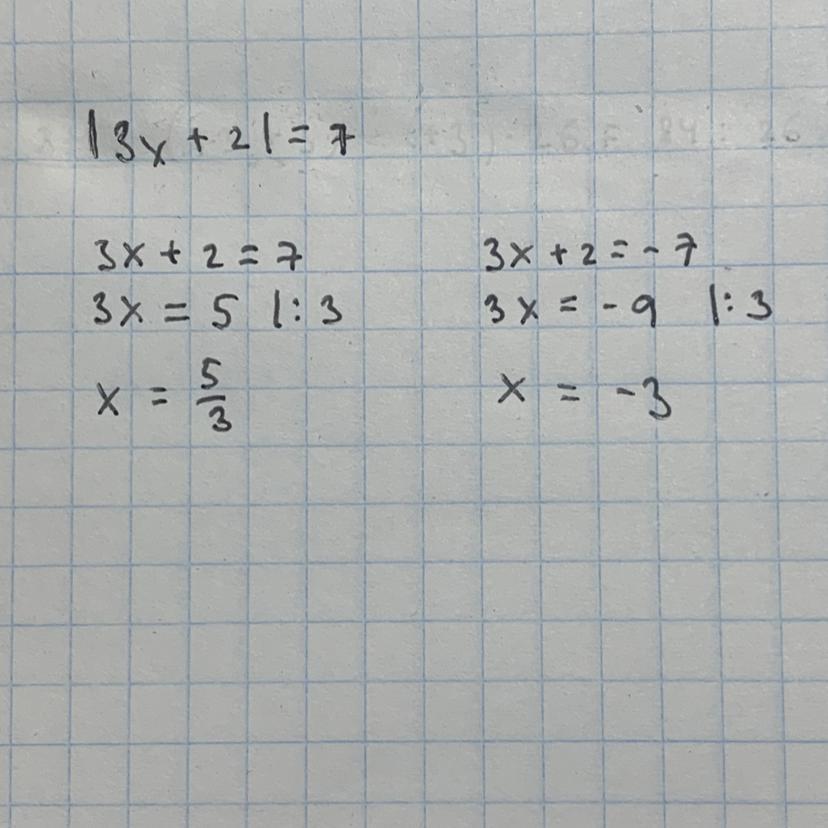 |3x + 2| = 7
3x + 2 = 7
3x = 5 |: 3
x = 5/3
3x + 2 = - 7
3x = - 9 |: 3
x = - 3